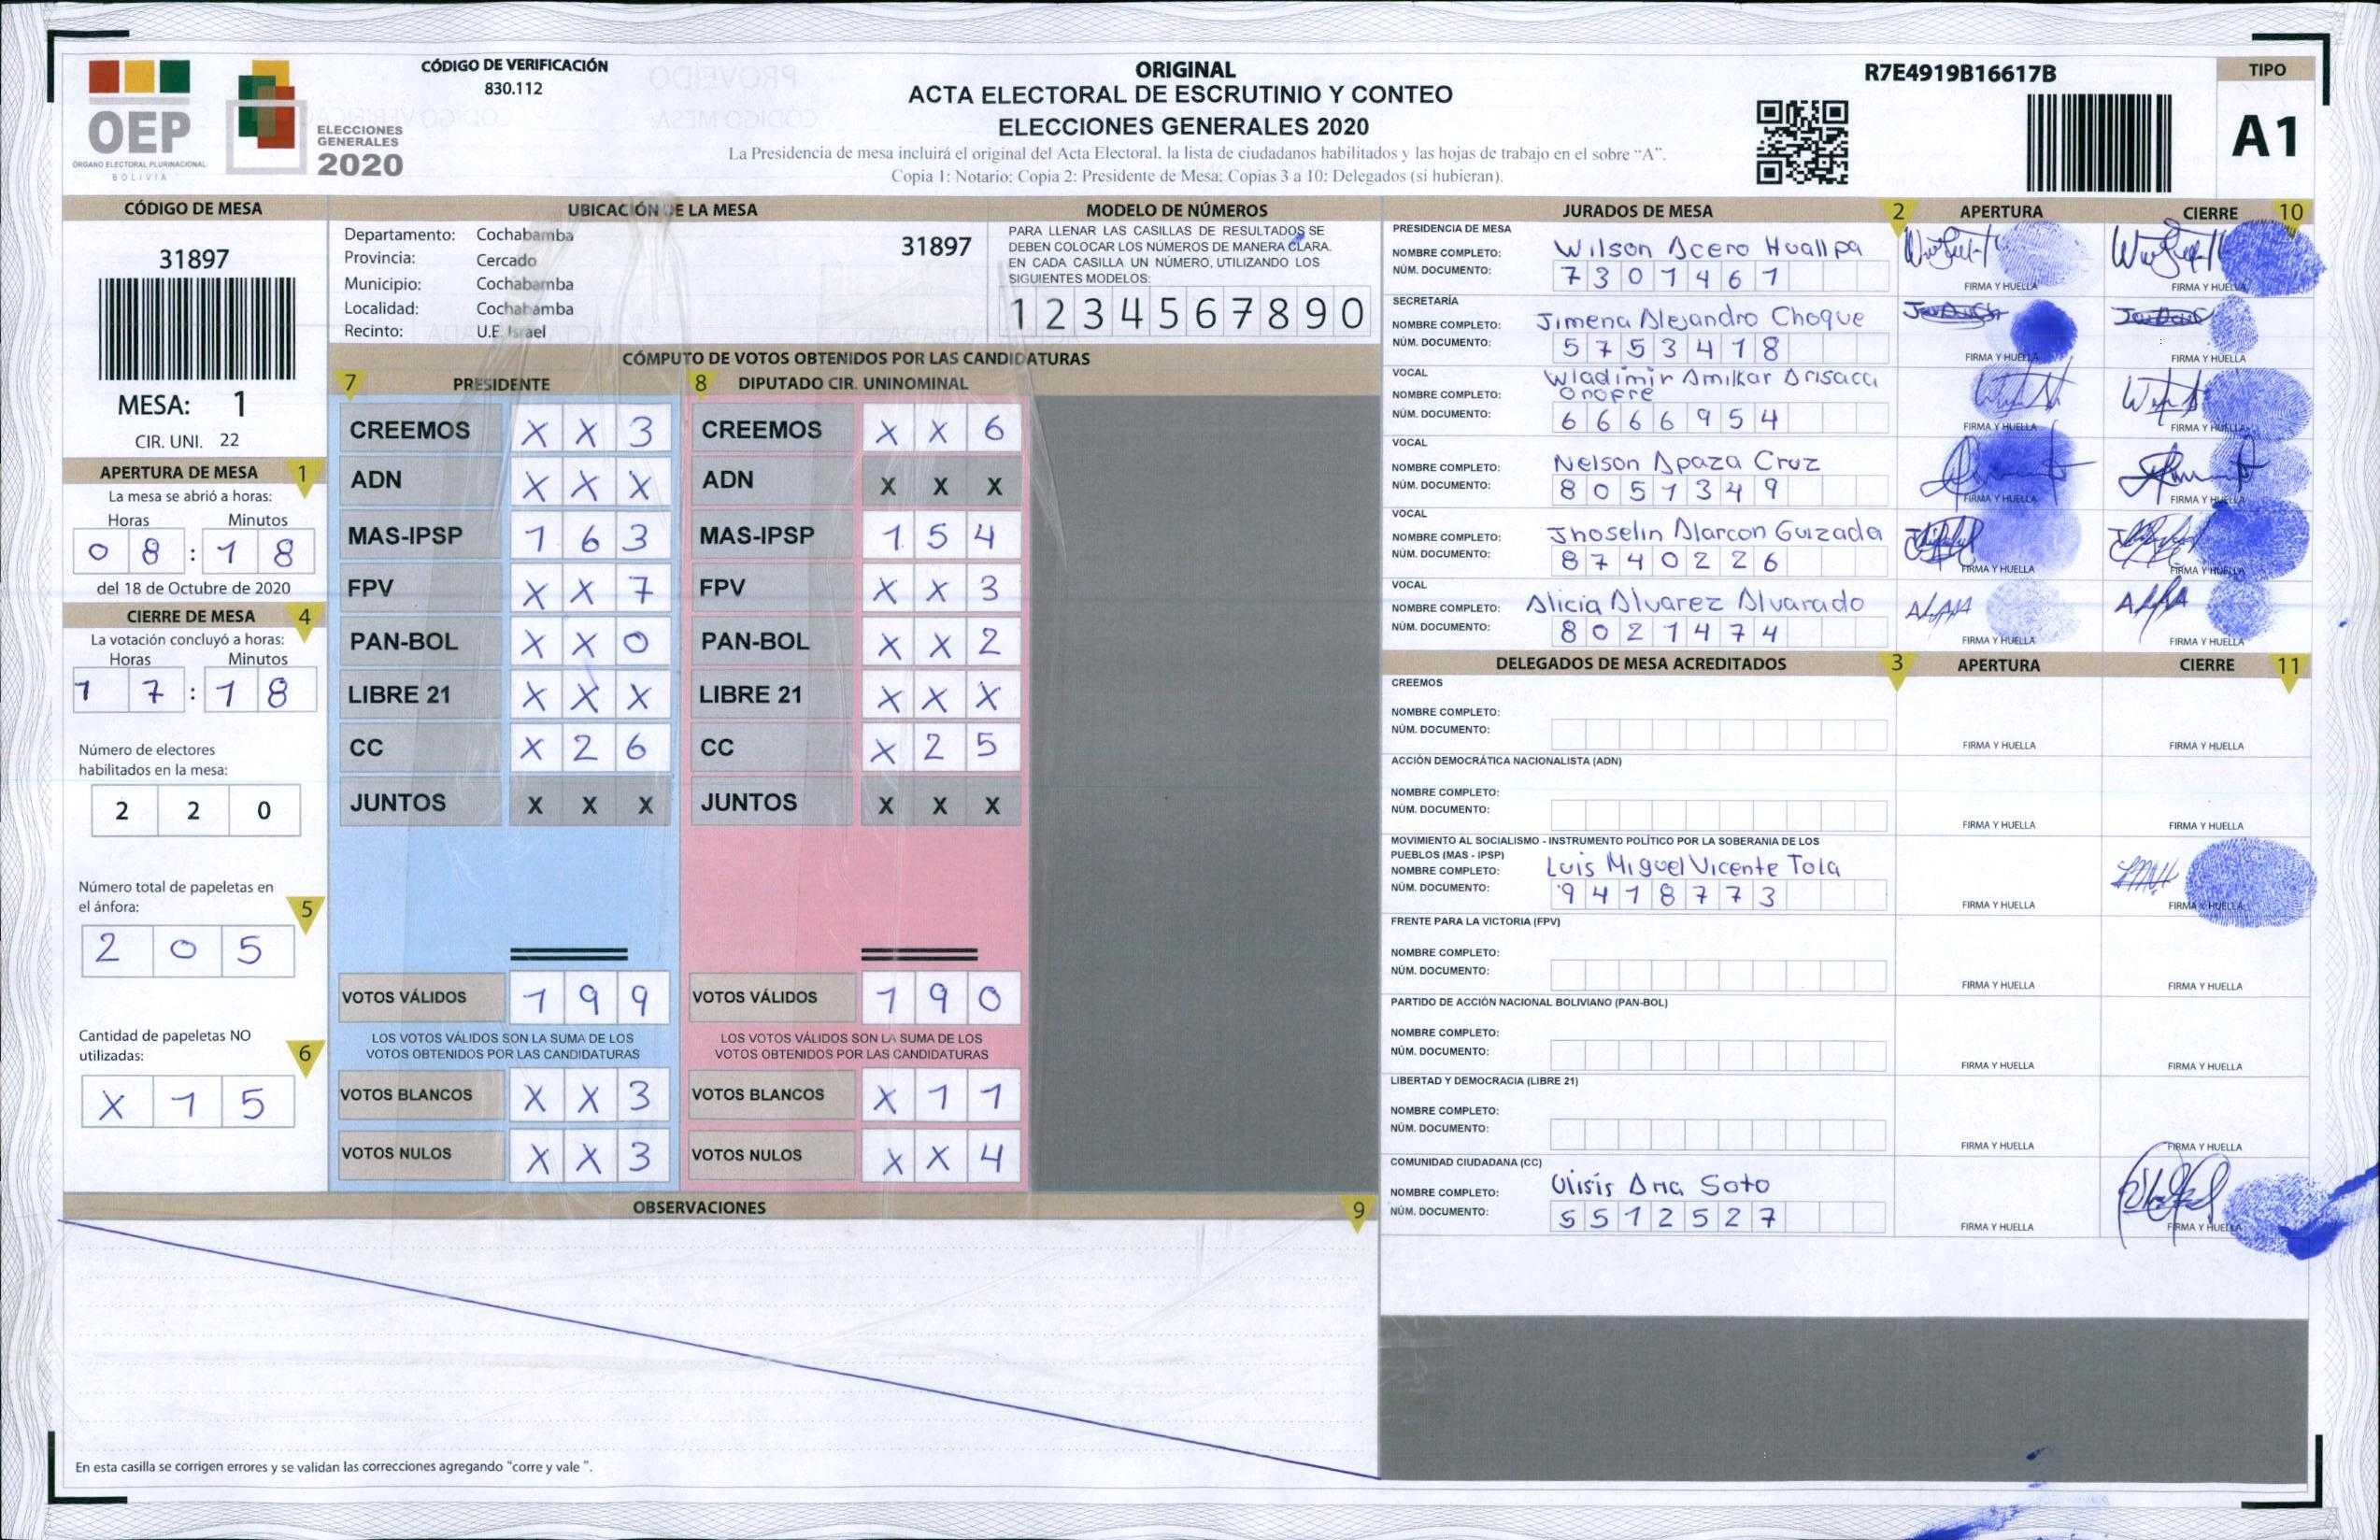 CÓDIGO DE VERIFICACIÓN
830.112
OEP
ÓRGANO ELECTORAL PLURINACIONAL
BOLIVIA
ELECCIONES
GENERALES
2020
ORIGINAL
ACTA ELECTORAL DE ESCRUTINIO Y CONTEO
ELECCIONES GENERALES 2020
La Presidencia de mesa incluirá el original del Acta Electoral, la lista de ciudadanos habilitados y las hojas de trabajo en el sobre "A".
Copia 1: Notario; Copia 2: Presidente de Mesa; Copias 3 a 10: Delegados (si hubieran).
R7E4919B16617B
TIPO
A1
CÓDIGO DE MESA
31897
MESA: 1
CIR. UNI. 22
APERTURA DE MESA 1
La mesa se abrió a horas:
Horas Minutos
0 8 : 1 8
del 18 de Octubre de 2020
CIERRE DE MESA 4
La votación concluyó a horas:
Horas Minutos
1 7 : 1 8
Número de electores
habilitados en la mesa:
2 2 0
Número total de papeletas en
el ánfora: 5
2 0 5
Cantidad de papeletas NO
utilizadas: 6
X 1 5
UBICACIÓN DE LA MESA
Departamento: Cochabamba
31897
Provincia: Cercado
Municipio: Cochabamba
Localidad: Cochabamba
Recinto: U.E. Israel
MODELO DE NÚMEROS
PARA LLENAR LAS CASILLAS DE RESULTADOS SE
DEBEN COLOCAR LOS NÚMEROS DE MANERA CLARA.
EN CADA CASILLA UN NÚMERO, UTILIZANDO LOS
SIGUIENTES MODELOS:
1 2 3 4 5 6 7 8 9 0
CÓMPUTO DE VOTOS OBTENIDOS POR LAS CANDIDATURAS
7 PRESIDENTE 8 DIPUTADO CIR. UNINOMINAL
CREEMOS X X 3 CREEMOS X X 6
ADN X X X ADN X X X
MAS-IPSP 1 6 3 MAS-IPSP 1 5 4
FPV X X 7 FPV X X 3
PAN-BOL X X 0 PAN-BOL X X 2
LIBRE 21 X X X LIBRE 21 X X X
CC X 2 6 CC X 2 5
JUNTOS X X X JUNTOS X X X
VOTOS VÁLIDOS 1 9 9 VOTOS VÁLIDOS 1 9 0
LOS VOTOS VÁLIDOS SON LA SUMA DE LOS LOS VOTOS VÁLIDOS SON LA SUMA DE LOS
VOTOS OBTENIDOS POR LAS CANDIDATURAS VOTOS OBTENIDOS POR LAS CANDIDATURAS
VOTOS BLANCOS X X 3 VOTOS BLANCOS X 1 1
VOTOS NULOS X X 3 VOTOS NULOS X X 4
OBSERVACIONES 9
En esta casilla se corrigen errores y se validan las correcciones agregando "corre y vale ".
JURADOS DE MESA 2 APERTURA CIERRE 10
PRESIDENCIA DE MESA
NOMBRE COMPLETO: Wilson Acero Huallpa
NÚM. DOCUMENTO: 7 3 0 1 4 6 1
FIRMA Y HUELLA FIRMA Y HUELLA
SECRETARÍA
NOMBRE COMPLETO: Jimena Alejandro Choque
NÚM. DOCUMENTO: 5 7 5 3 4 1 8
FIRMA Y HUELLA FIRMA Y HUELLA
VOCAL
NOMBRE COMPLETO: Wladimir Amilkar Arisaca
Onofre
NÚM. DOCUMENTO: 6 6 6 6 9 5 4
FIRMA Y HUELLA FIRMA Y HUELLA
VOCAL
NOMBRE COMPLETO: Nelson Apaza Cruz
NÚM. DOCUMENTO: 8 0 5 1 3 4 9
FIRMA Y HUELLA FIRMA Y HUELLA
VOCAL
NOMBRE COMPLETO: Jhoselin Alarcon Guizada
NÚM. DOCUMENTO: 8 7 4 0 2 2 6
FIRMA Y HUELLA FIRMA Y HUELLA
VOCAL
NOMBRE COMPLETO: Alicia Alvarez Alvarado
NÚM. DOCUMENTO: 8 0 2 1 4 7 4
FIRMA Y HUELLA FIRMA Y HUELLA
DELEGADOS DE MESA ACREDITADOS 3 APERTURA CIERRE 11
CREEMOS
NOMBRE COMPLETO:
NÚM. DOCUMENTO:
FIRMA Y HUELLA FIRMA Y HUELLA
ACCIÓN DEMOCRÁTICA NACIONALISTA (ADN)
NOMBRE COMPLETO:
NÚM. DOCUMENTO:
FIRMA Y HUELLA FIRMA Y HUELLA
MOVIMIENTO AL SOCIALISMO - INSTRUMENTO POLÍTICO POR LA SOBERANIA DE LOS
PUEBLOS (MAS - IPSP)
NOMBRE COMPLETO: Luis Miguel Vicente Tola
NÚM. DOCUMENTO: 9 4 1 8 7 7 3
FIRMA Y HUELLA FIRMA Y HUELLA
FRENTE PARA LA VICTORIA (FPV)
NOMBRE COMPLETO:
NÚM. DOCUMENTO:
FIRMA Y HUELLA FIRMA Y HUELLA
PARTIDO DE ACCIÓN NACIONAL BOLIVIANO (PAN-BOL)
NOMBRE COMPLETO:
NÚM. DOCUMENTO:
FIRMA Y HUELLA FIRMA Y HUELLA
LIBERTAD Y DEMOCRACIA (LIBRE 21)
NOMBRE COMPLETO:
NÚM. DOCUMENTO:
FIRMA Y HUELLA FIRMA Y HUELLA
COMUNIDAD CIUDADANA (CC)
NOMBRE COMPLETO: Soto
NÚM. DOCUMENTO: 5 5 1 2 5 2 7
FIRMA Y HUELLA FIRMA Y HUELLA